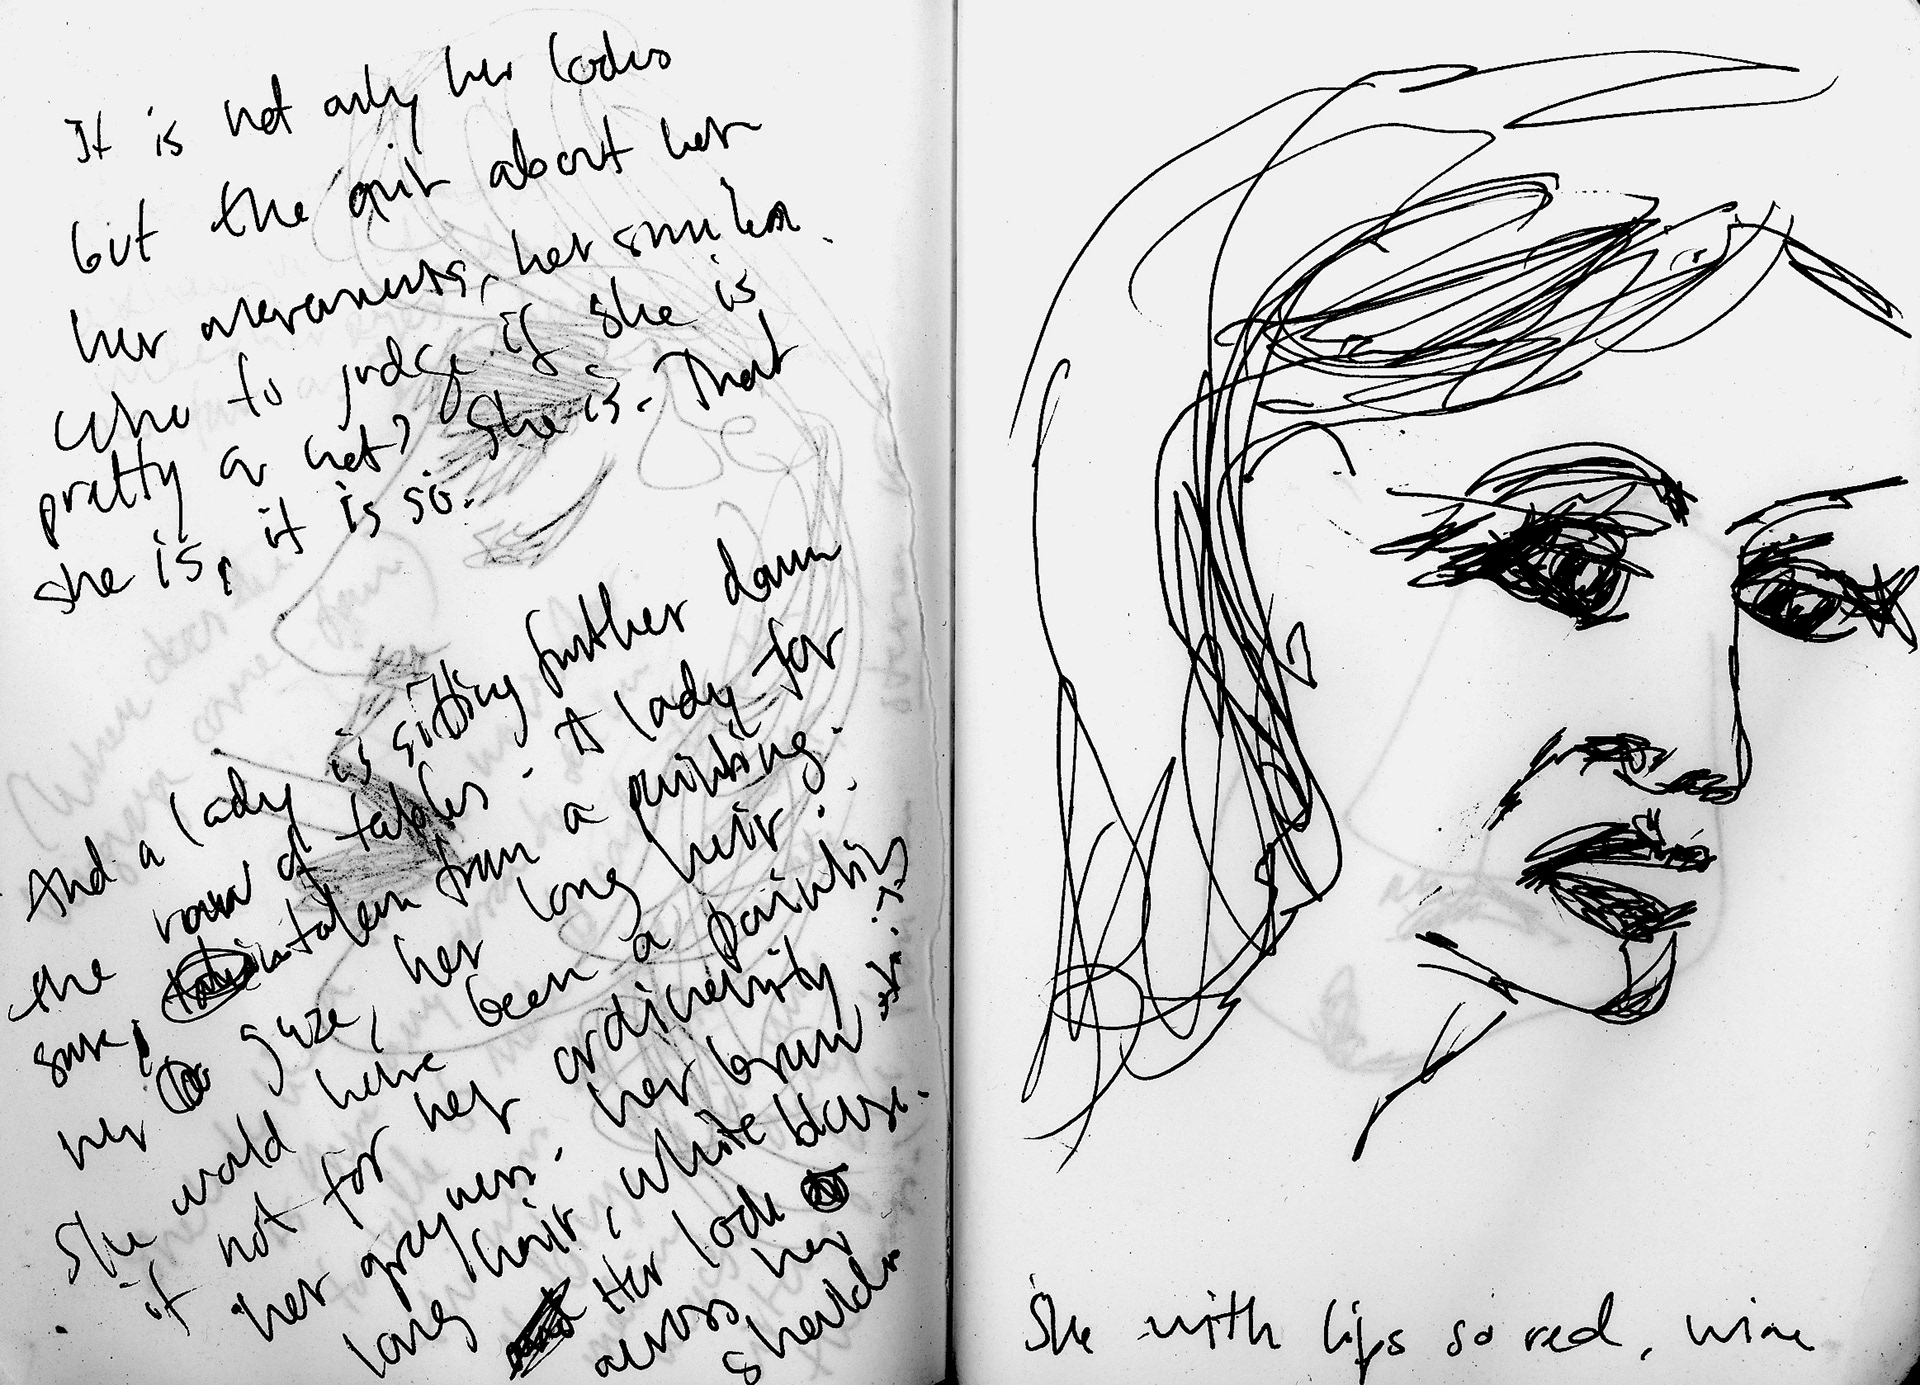 It is not only her looks
but the air about her
her movements, her smiles.
Who to judge if she is
pretty or not? She is. That
she is, it is so.
And a lady is sitting further down
the row of tables. A lady for
sure, taken from a painting.
her gaze, her long hair.
She would have been a painting
if not for her ordinarity
her greyness. her brown
long hair, white blouse.
Her look
across her
shoulder
She with lips so red, wine